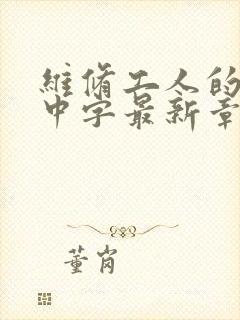 維脩工人的
中字最新章
董肖